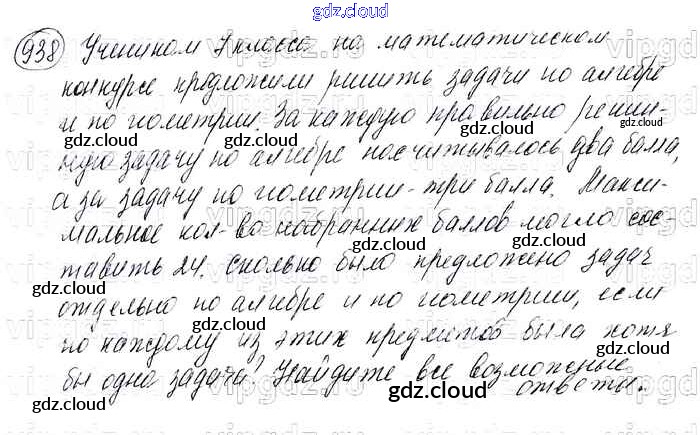 gdz.cloud
938 Ученикам 9 класса на математическом
конкурсе предложили решить задачи по алгебре
и по геометрии. За каждую правильно решен-
gdz.cloud gdz.cloud gdz.cloud
ную задачу по алгебре насчитывалось два балла,
а за задачу по геометрии - три балла. Макси-
мальное кол-во набранных баллов могло сос-
gdz.cloud gdz.cloud gdz.cloud
тавить 24. Сколько было предложено задач
gdz.cloud gdz.cloud gdz.cloud
отдельно по алгебре и по геометрии, если
по каждому из этих предметов была хотя
бы одна задача? Найдите все возможные
gdz.cloud gdz.cloud gdz.cloud
ответы.